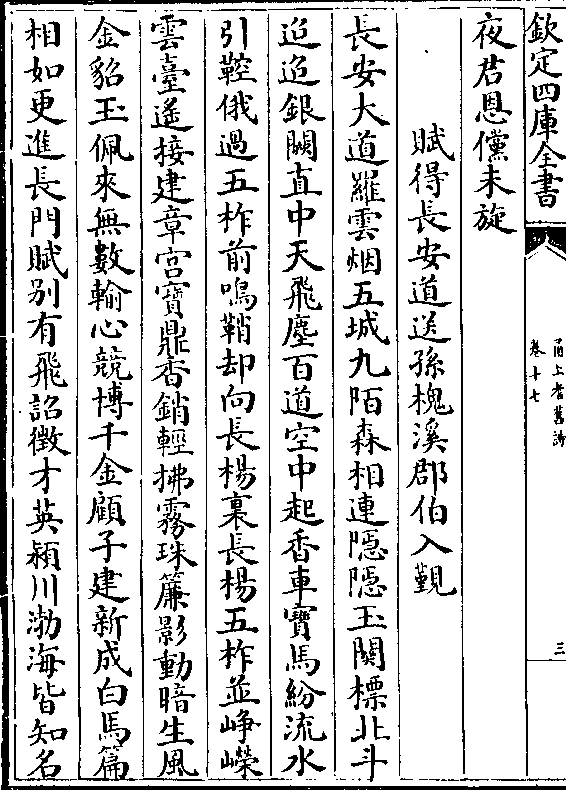 欽定四庫全書
甬上耆舊詩
卷十七
三
夜君恩儻未旋
賦得長安道送孫槐溪郡伯入覲
長安大道羅雲烟五城九陌森相連隠隠玉闕標北斗
迢迢銀闕直中天飛塵百道空中起香車寶馬紛流水
引鞚俄過五柞前鳴鞘却向長楊裏長楊五柞並峥嶸
雲臺遙接建章宫寶鼎香銷輕拂霧珠簾影動暗生風
金貂玉佩來無數輸心競博千金顧子建新成白馬篇
相如更進長門賦别有飛詔徴才英潁川渤海皆知名